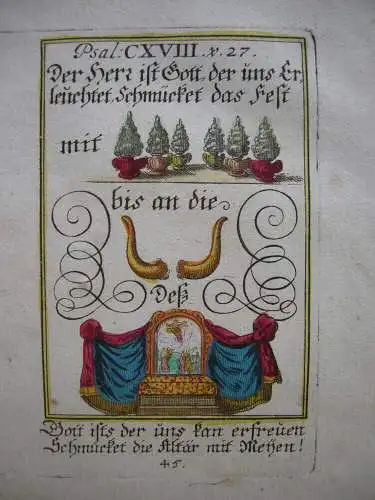 Psal: CXVIII. v. 27.
Der Herr ist Gott, der üns Er,
leüchtet, Schmücket das Fest
mit
bis an die
Deß
Gott ists der üns kan erfreüen
Schmücket die Altär mit Meyen!
45.